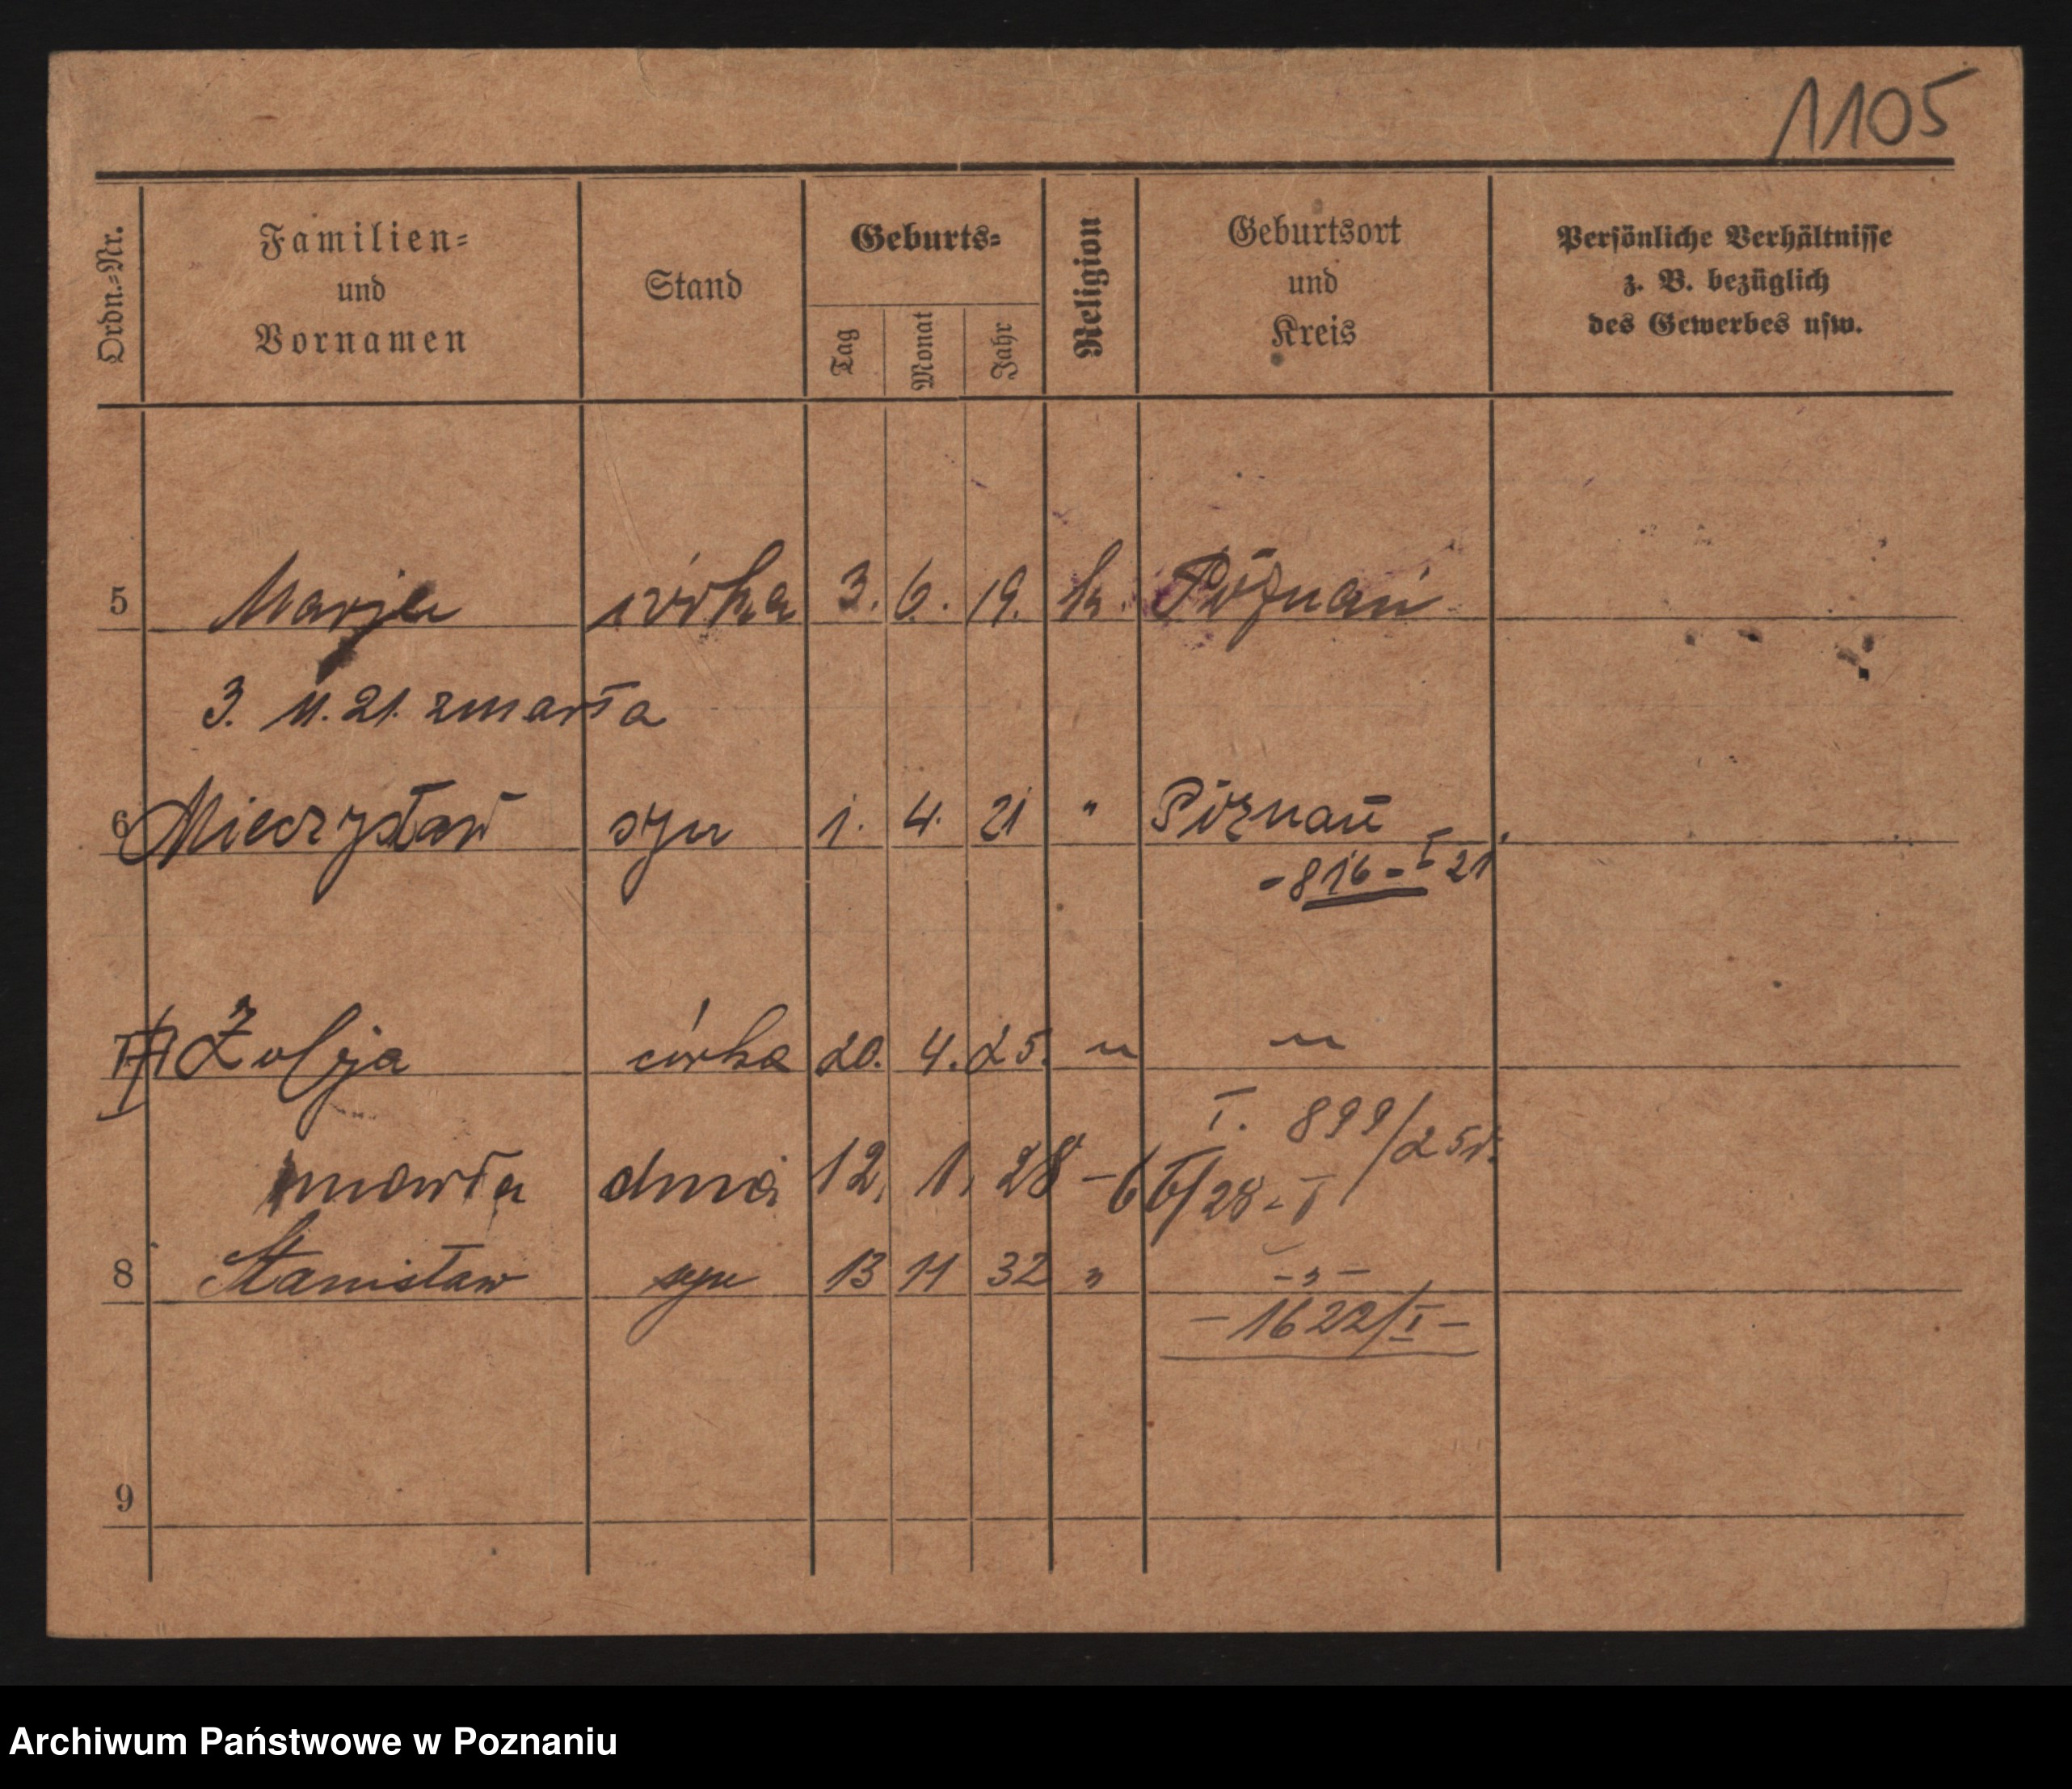 1105
Ordn.=Nr.
Familien=
und
Vornamen
Stand
Geburts=
Tag
Monat
Jahr
Religion
Geburtsort
und
Kreis
Persönliche Verhältnisse
z. B. bezüglich
des Gewerbes usw.
5 Marja córka 3. 6. 19. k. Poznań
3. 11. 21. zmarła
6 Mieczysław syn 1. 4. 21 " Poznań
- 816 - I 21
Zofja córka 20. 4. 25. " "
I. 899/25r.
zmarła dnia 12. 1. 28 - /28 - I
8 Stanisław syn 13 11 32 " - " -
- 1622/I -
9
Archiwum Państwowe w Poznaniu